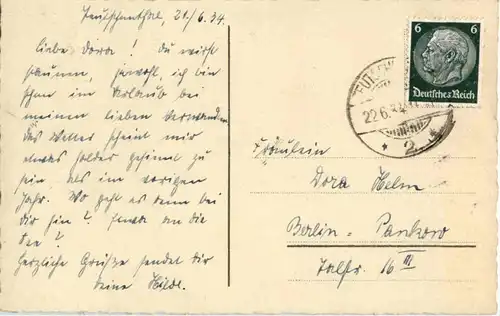 Teutschenthal, 21./6.34.
Liebe Dora! Du wirst
staunen, jawohl, ich bin
schon im Urlaub bei
meinen lieben Verwandten
das Wetter scheint mir
etwas holder gesinnt zu
sein als im vorigen
Jahr. Wo geht es denn bei
dir hin? Etwa an die
See?
Herzliche Grüße sendet dir
deine Hilde.
6 6
Deutsches Reich
22.6.34
* 2 *
Fräulein
Dora Helm
Berlin = Pankow
Talstr. 16 III